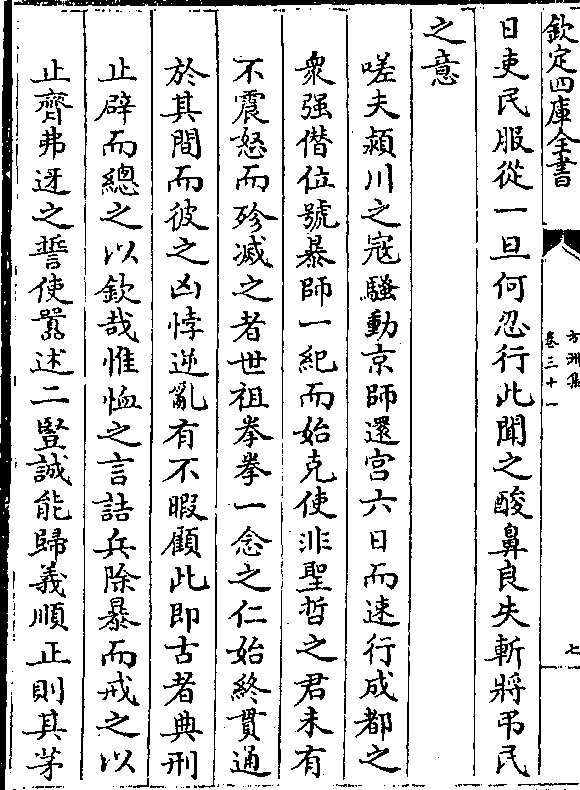 欽定四庫全書
方洲集
卷三十一
七
日吏民服從一旦何忍行此聞之酸鼻良失斬將弔民
之意
嗟夫潁川之冦騷動京師還宫六日而速行成都之
衆强僭位號暴師一紀而始克使非聖哲之君未有
不震怒而殄滅之者世祖拳拳一念之仁始終貫通
於其間而彼之凶悖逆亂有不暇顧此即古者典刑
止辟而總之以欽哉惟恤之言詰兵除暴而戒之以
止齊弗迓之誓使嚣述二豎誠能歸義順正則其茅